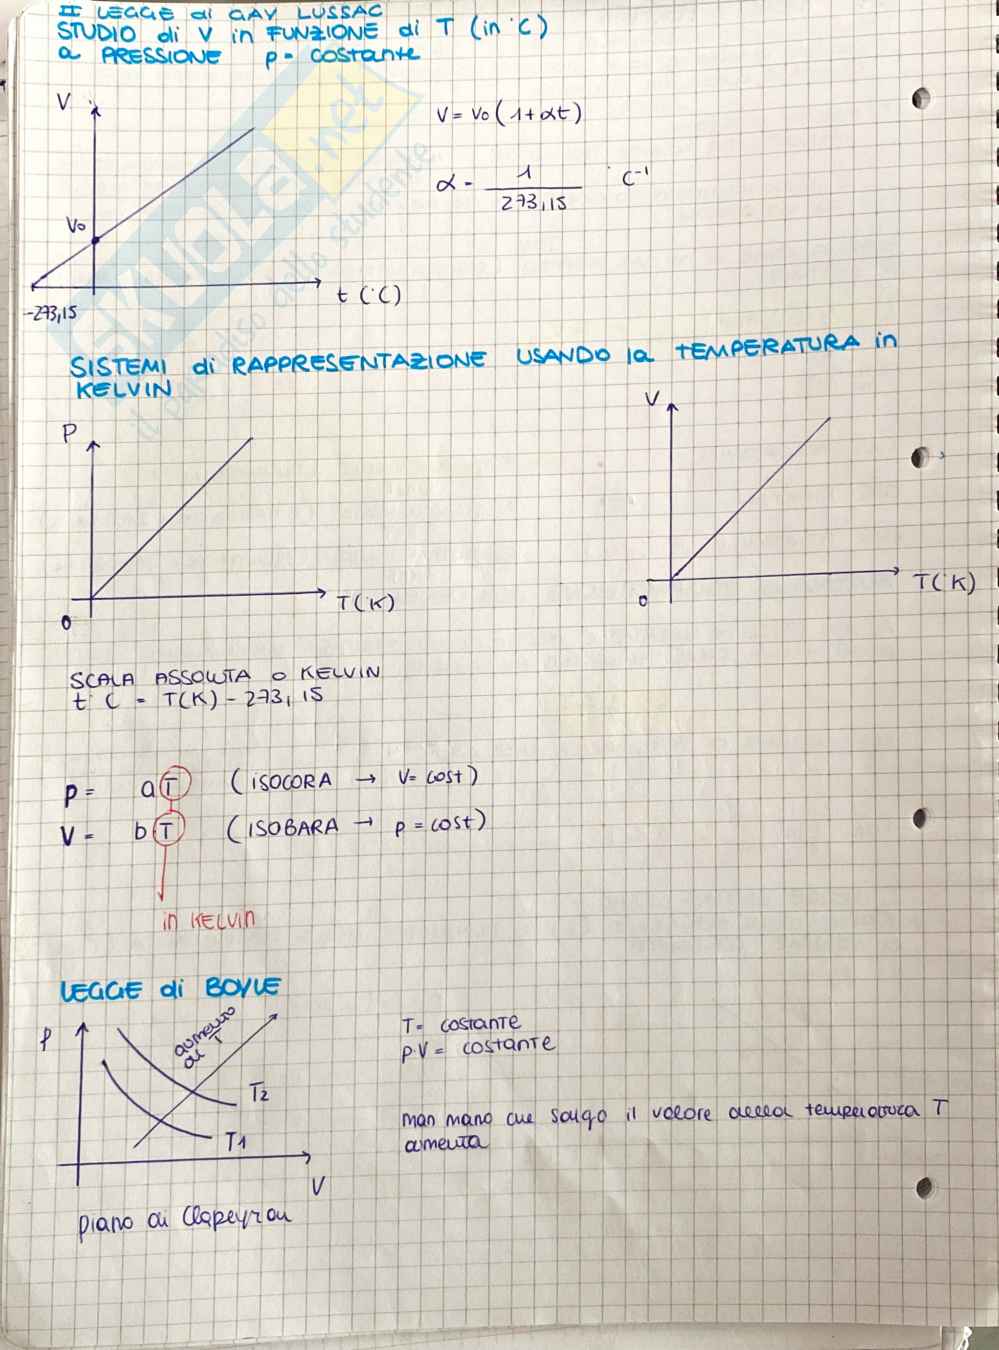 II LEGGE di GAY LUSSAC
STUDIO di V in FUNZIONE di T (in °C)
a PRESSIONE p = costante
V
V = Vo (1 + αt)
α = 1 / 273,15 °C⁻¹
Vo
t (°C)
-273,15
SKUOLA.net
il paradiso dello studente
SISTEMI di RAPPRESENTAZIONE USANDO la TEMPERATURA in
KELVIN
P
V
T(°K)
T(°K)
0
0
SCALA ASSOLUTA o KELVIN
t °C = T(K) - 273,15
p = aT (ISOCORA → V = cost)
V = bT (ISOBARA → p = cost)
in KELVIN
LEGGE di BOYLE
p
aumento
di T
T2
T1
V
T = costante
p·V = costante
man mano che salgo il valore della temperatura T
aumenta
piano di Clapeyron